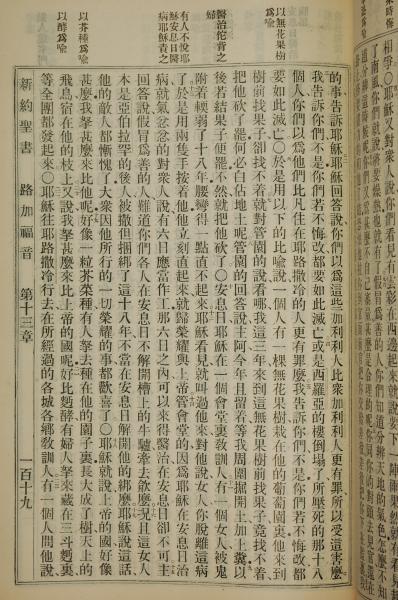 相爭〇耶穌又對衆人說你們看見有雲彩在西邊起來就說要下一陣雨
了南風你們就說將要燥熱也就有了假冒爲善的人你們知道分辨天地的氣色怎麼不知
以無花果樹
爲喩
醫治佗背之
婦
有人不悅耶
穌安息日醫
病耶穌責之
以芥種爲喩
以酵爲喩
的事告訴耶穌耶穌回答說你們以爲這些加利利人比衆加利利人更有罪所以受這害麼
我告訴你們不是你們若不悔改都要如此滅亡或是西羅亞的樓倒塌了所壓死的那十八
個人你們以爲他們比凡住在耶路撒冷的人更有罪麼我告訴你們不是你們若不悔改都
要如此滅亡〇於是用以下的比喩說一個人有一棵無花果樹栽在他的葡萄園裏他來到
樹前找果子卻找不着就對管園的說看哪我這三年來到這無花果樹前找果子竟找不着
把他砍了罷何必白佔地土呢管園的回答說主阿今年且留着等我周圍掘開土加上糞以
後若結果子便罷不然就把他砍了〇安息日耶穌在一個會堂裏敎訓人有一個女人被鬼
附着輭弱了十八年腰彎得一點直不起來耶穌看見就叫過他來對他說女人你脫離這病
了於是用兩隻手按着他他立刻直起來就歸榮耀與上帝管會堂的因爲耶穌在安息日治
病就氣忿忿的對衆人說有六日應當作工那六日之內可以來得醫治在安息日卻不可主
回答說假冒爲善的人難道你們各人在安息日不解開槽上的牛驢牽去飮麼況且這女人
本是亞伯拉罕的後人被撒但捆綁了這十八年不當在安息日解開他的綁麼耶穌說這話
他的敵人都慚愧了大衆因他所行的一切榮耀的事都歡喜了〇耶穌就說上帝的國好像
甚麼我拏甚麼來比他呢好像一粒芥菜種有人拏去種在他的園子裏長大成了樹天上的
飛鳥宿在他的枝上又說我拏甚麼來比上帝的國呢好比麪酵有婦人拏來藏在三斗麪裏
等全團都發起來〇耶穌往耶路撒冷行去在所經過的各城各鄕敎訓人有一個人問他說
新約聖書 路加福音 第十三章 一百十九